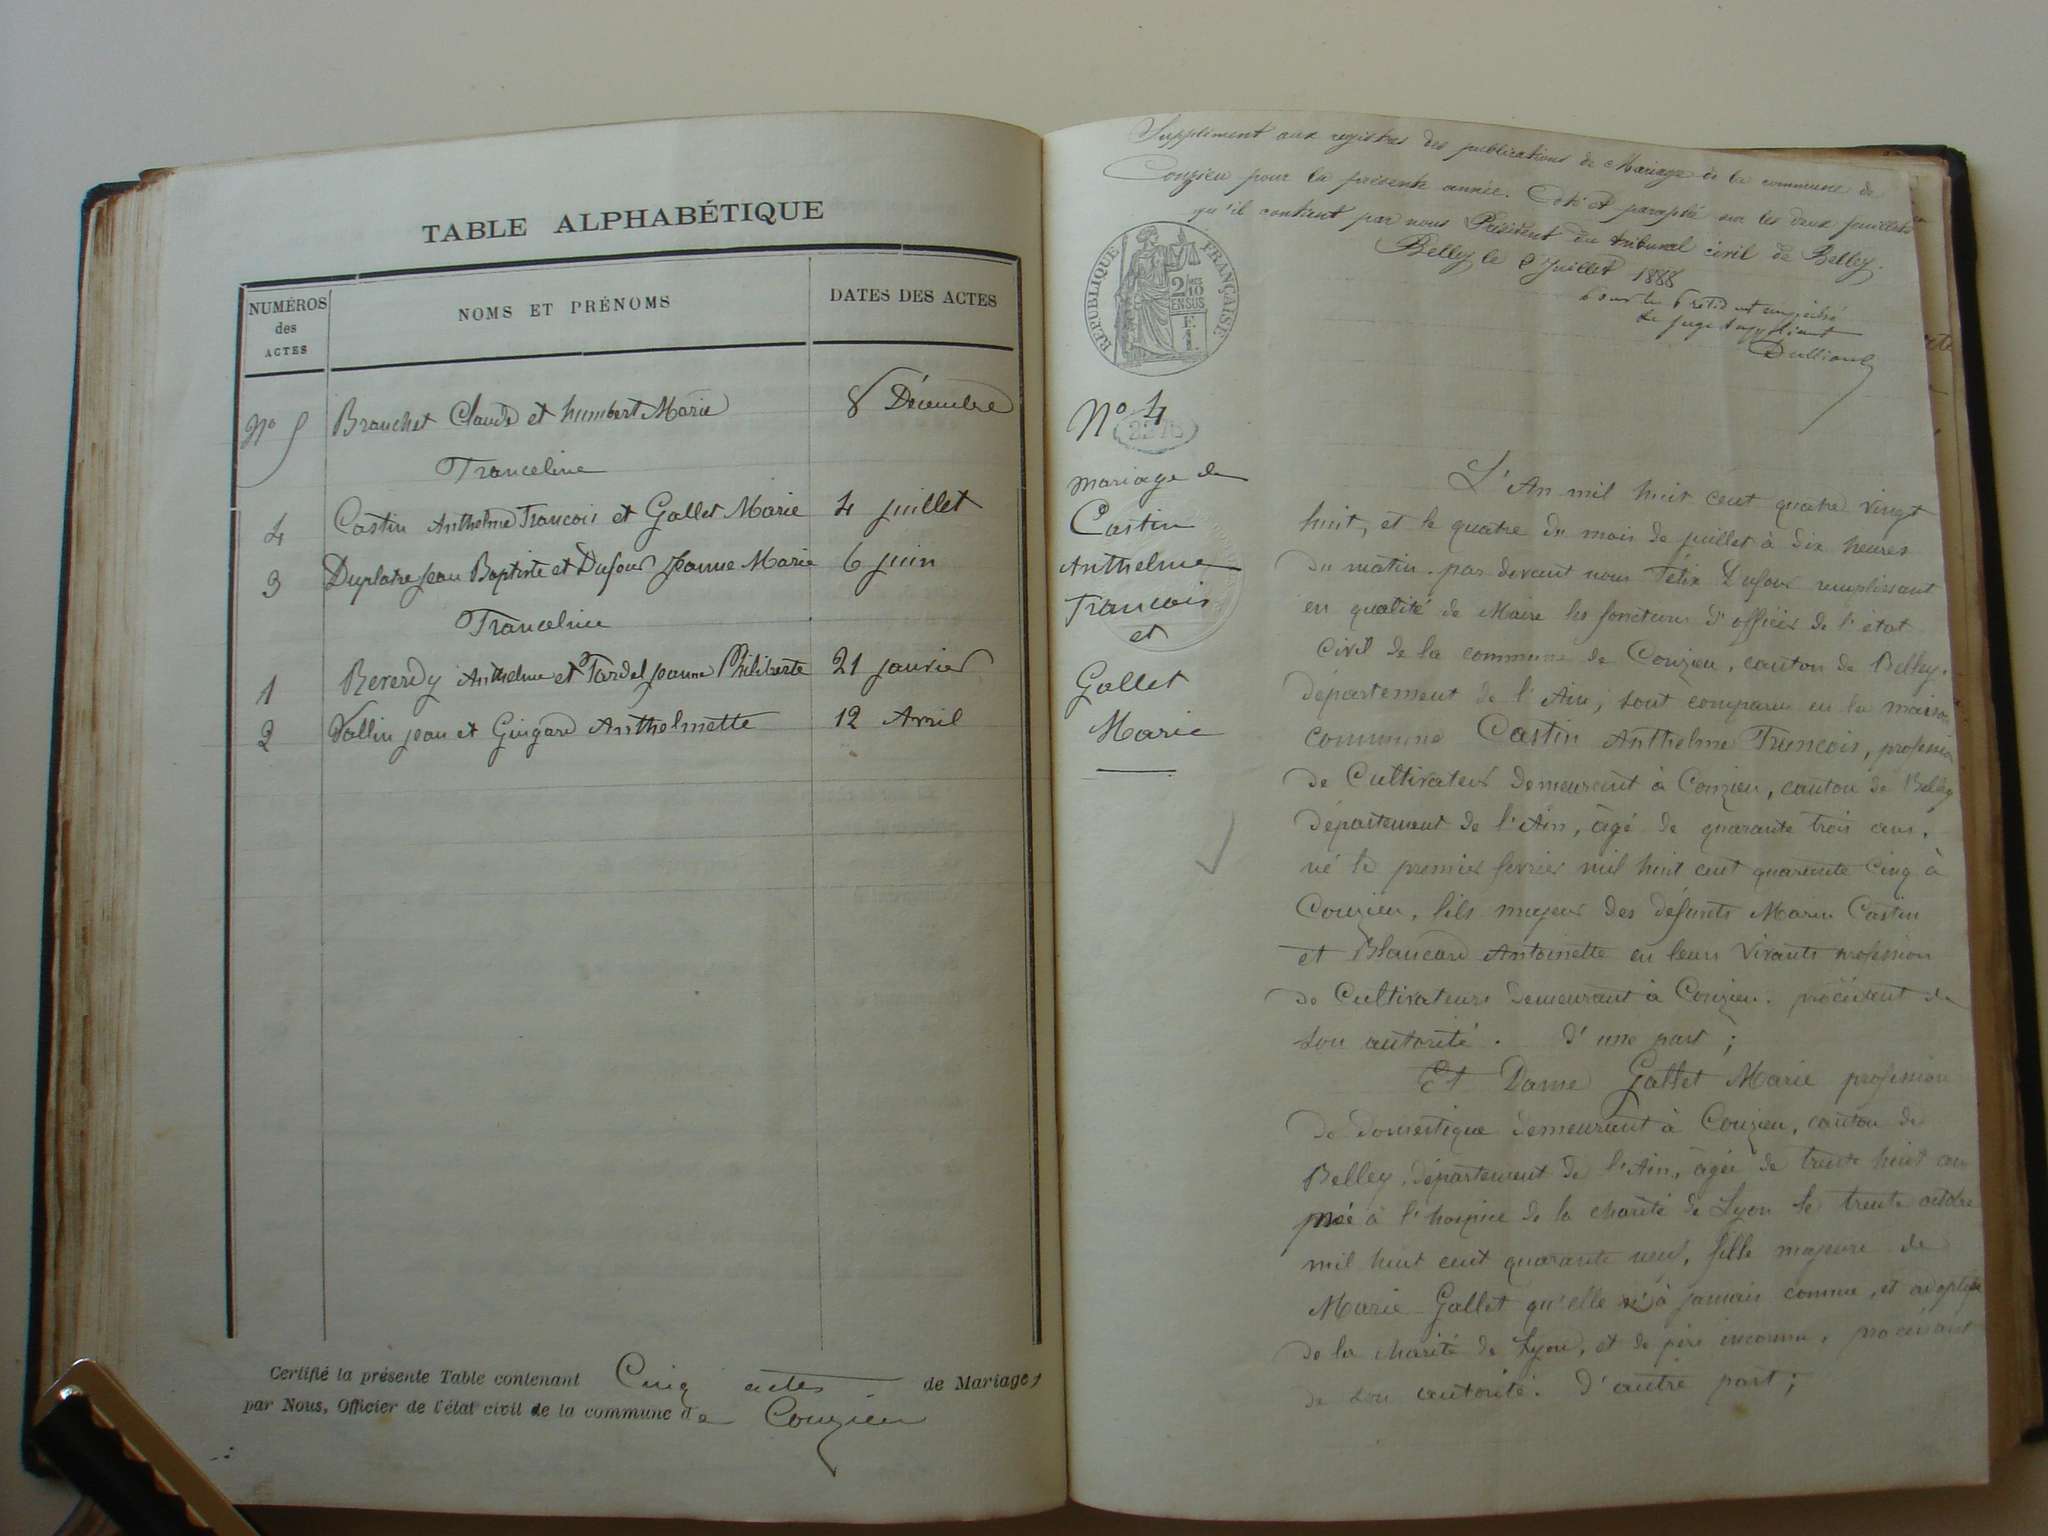 TABLE ALPHABÉTIQUE
NUMÉROS des ACTES
NOMS ET PRÉNOMS
DATES DES ACTES
No 5 Branchet Claude et humbert Marie 8 Décembre
Franceline
4 Castin Anthelme Francois et Gallet Marie 4 juillet
3 Duplatre Jean Baptiste et Dufour Jeanne Marie 6 juin
Franceline
1 Reverdy Anthelme et Tardel Jeanne Philiberte 21 janvier
2 Vallin Jean et Guigard Anthelmette 12 Avril
Certifié la présente Table contenant Cinq actes de Mariages
par Nous, Officier de l'état civil de la commune de Conzieu
Supplément aux registres des publications de Mariage de la commune de
Conzieu pour la présente année. Coté et paraphé sur les deux feuillets
qu'il contient par nous Président du tribunal civil de Belley.
Belley le 2 Juillet 1888
Pour le Président empêché
Le juge suppléant
RÉPUBLIQUE FRANÇAISE
2/10 EN SUS
No 4
Mariage de
Castin
Anthelme
Francois
et
Gallet
Marie
L'An mil huit cent quatre vingt
huit, et le quatre du mois de juillet à dix heures
du matin. par devant nous Félix Dufour remplissant
en qualité de Maire les fonctions d'officier de l'état
civil de la commune de Conzieu, canton de Belley.
département de l'Ain, sont comparu en la maison
commune Castin Anthelme Francois, profession
de Cultivateur demeurant à Conzieu, canton de Belley
département de l'Ain, âgé de quarante trois ans.
né le premier fevrier mil huit cent quarante cinq à
Conzieu, fils majeur des défunts Marin Castin
et Blancard Antoinette en leurs vivants profession
de Cultivateurs demeurant à Conzieu. procédant de
son autorité. d'une part;
Et Dame Gallet Marie profession
de domestique demeurant à Conzieu, canton de
Belley, département de l'Ain, âgée de trente huit ans
née à l'hospice de la charité de Lyon le trente octobre
mil huit cent quarante neuf, fille majeure de
Marie Gallet qu'elle n'à jamais connue, et adoptive
de la charité de Lyon, et de père inconnu, procédant
de son autorité. D'autre part;